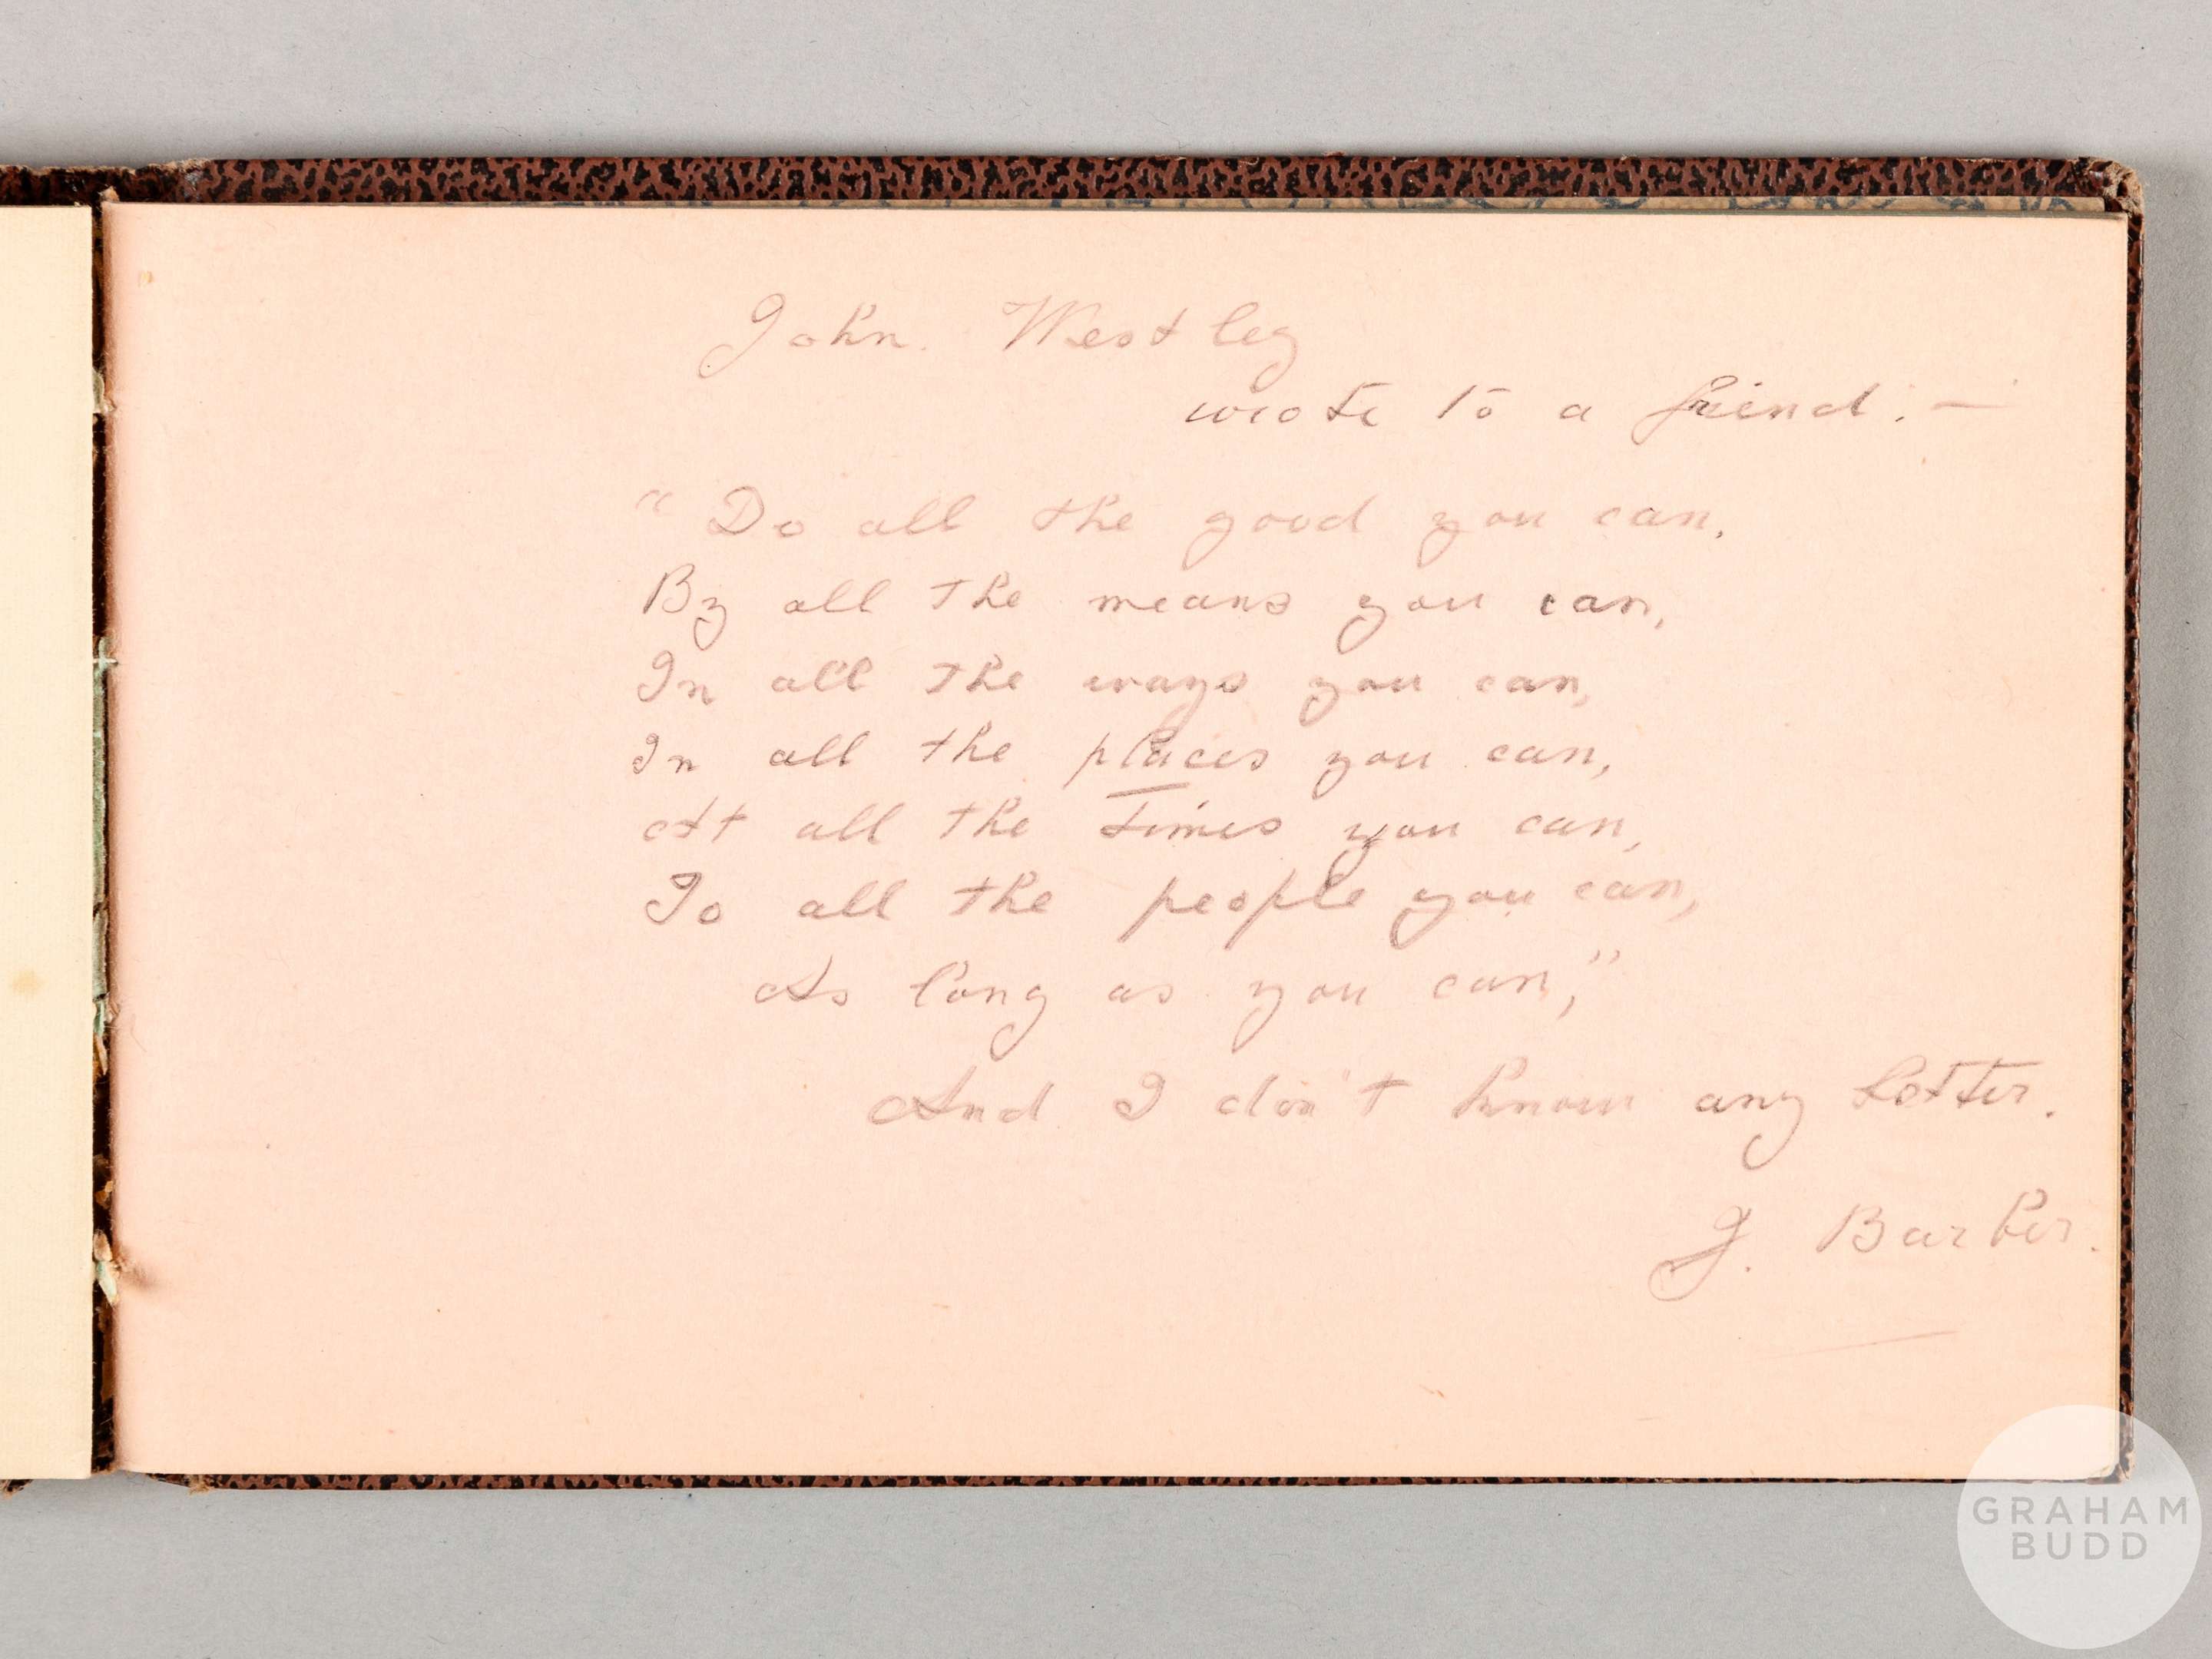 John. Westley
wrote to a friend :—
"Do all the good you can,
By all the means you can,
In all the ways you can,
In all the places you can,
At all the times you can,
To all the people you can,
As long as you can,"
And I don't know any better.
J. Barker.
GRAHAM
BUDD